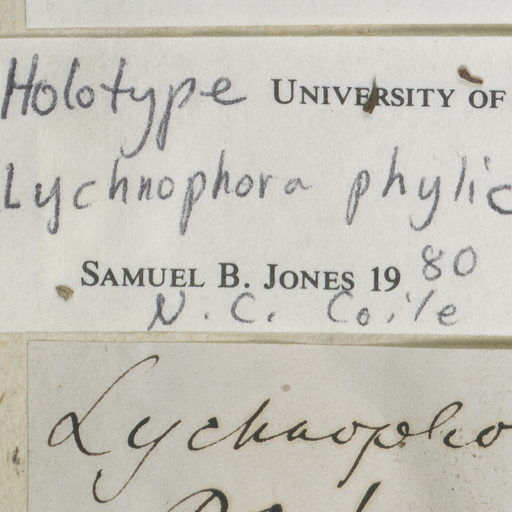 Holotype UNIVERSITY OF
Lychnophora phylic
SAMUEL B. JONES 1980
N. C. Coile
Lychnopho